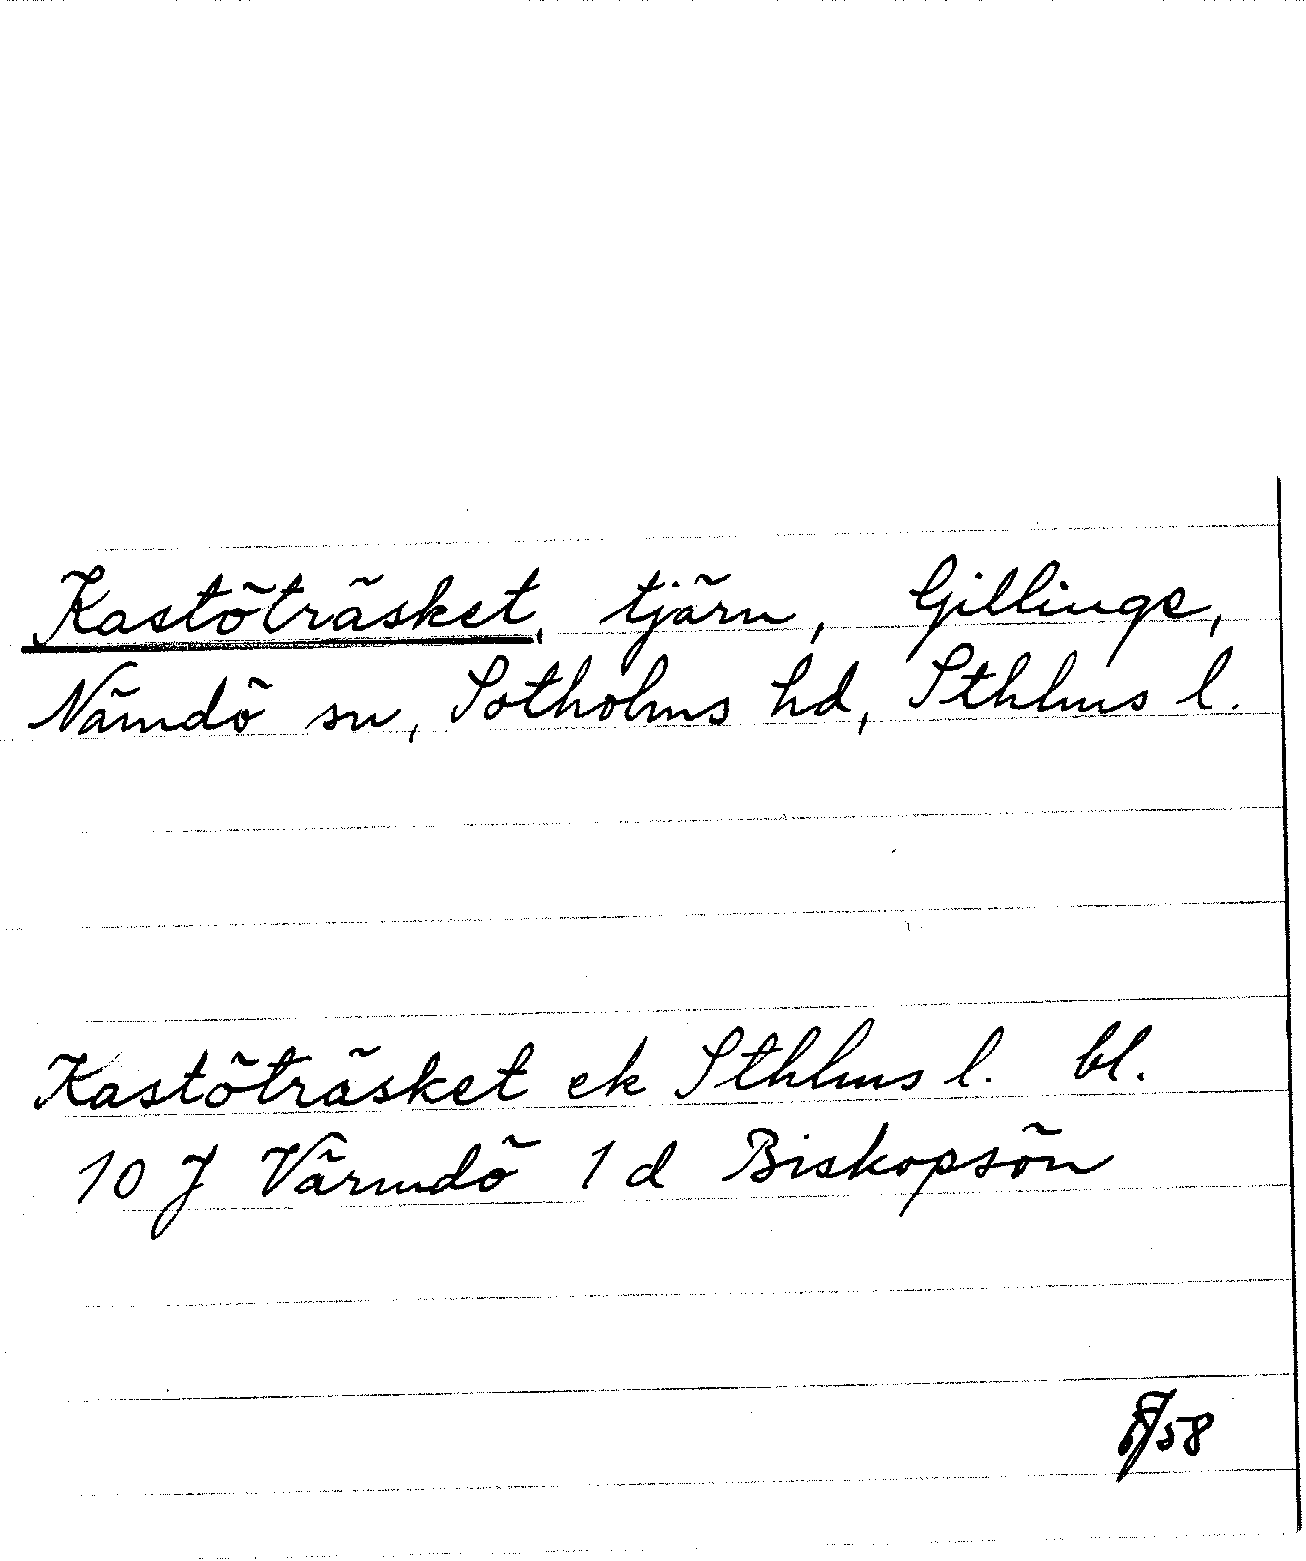 Kastöträsket, tjärn, Gillinge,
Nämdö sn, Sotholms hd, Sthlms l.
Kastöträsket ek Sthlms l. bl.
10 J Värmdö 1 d Biskopsön
58